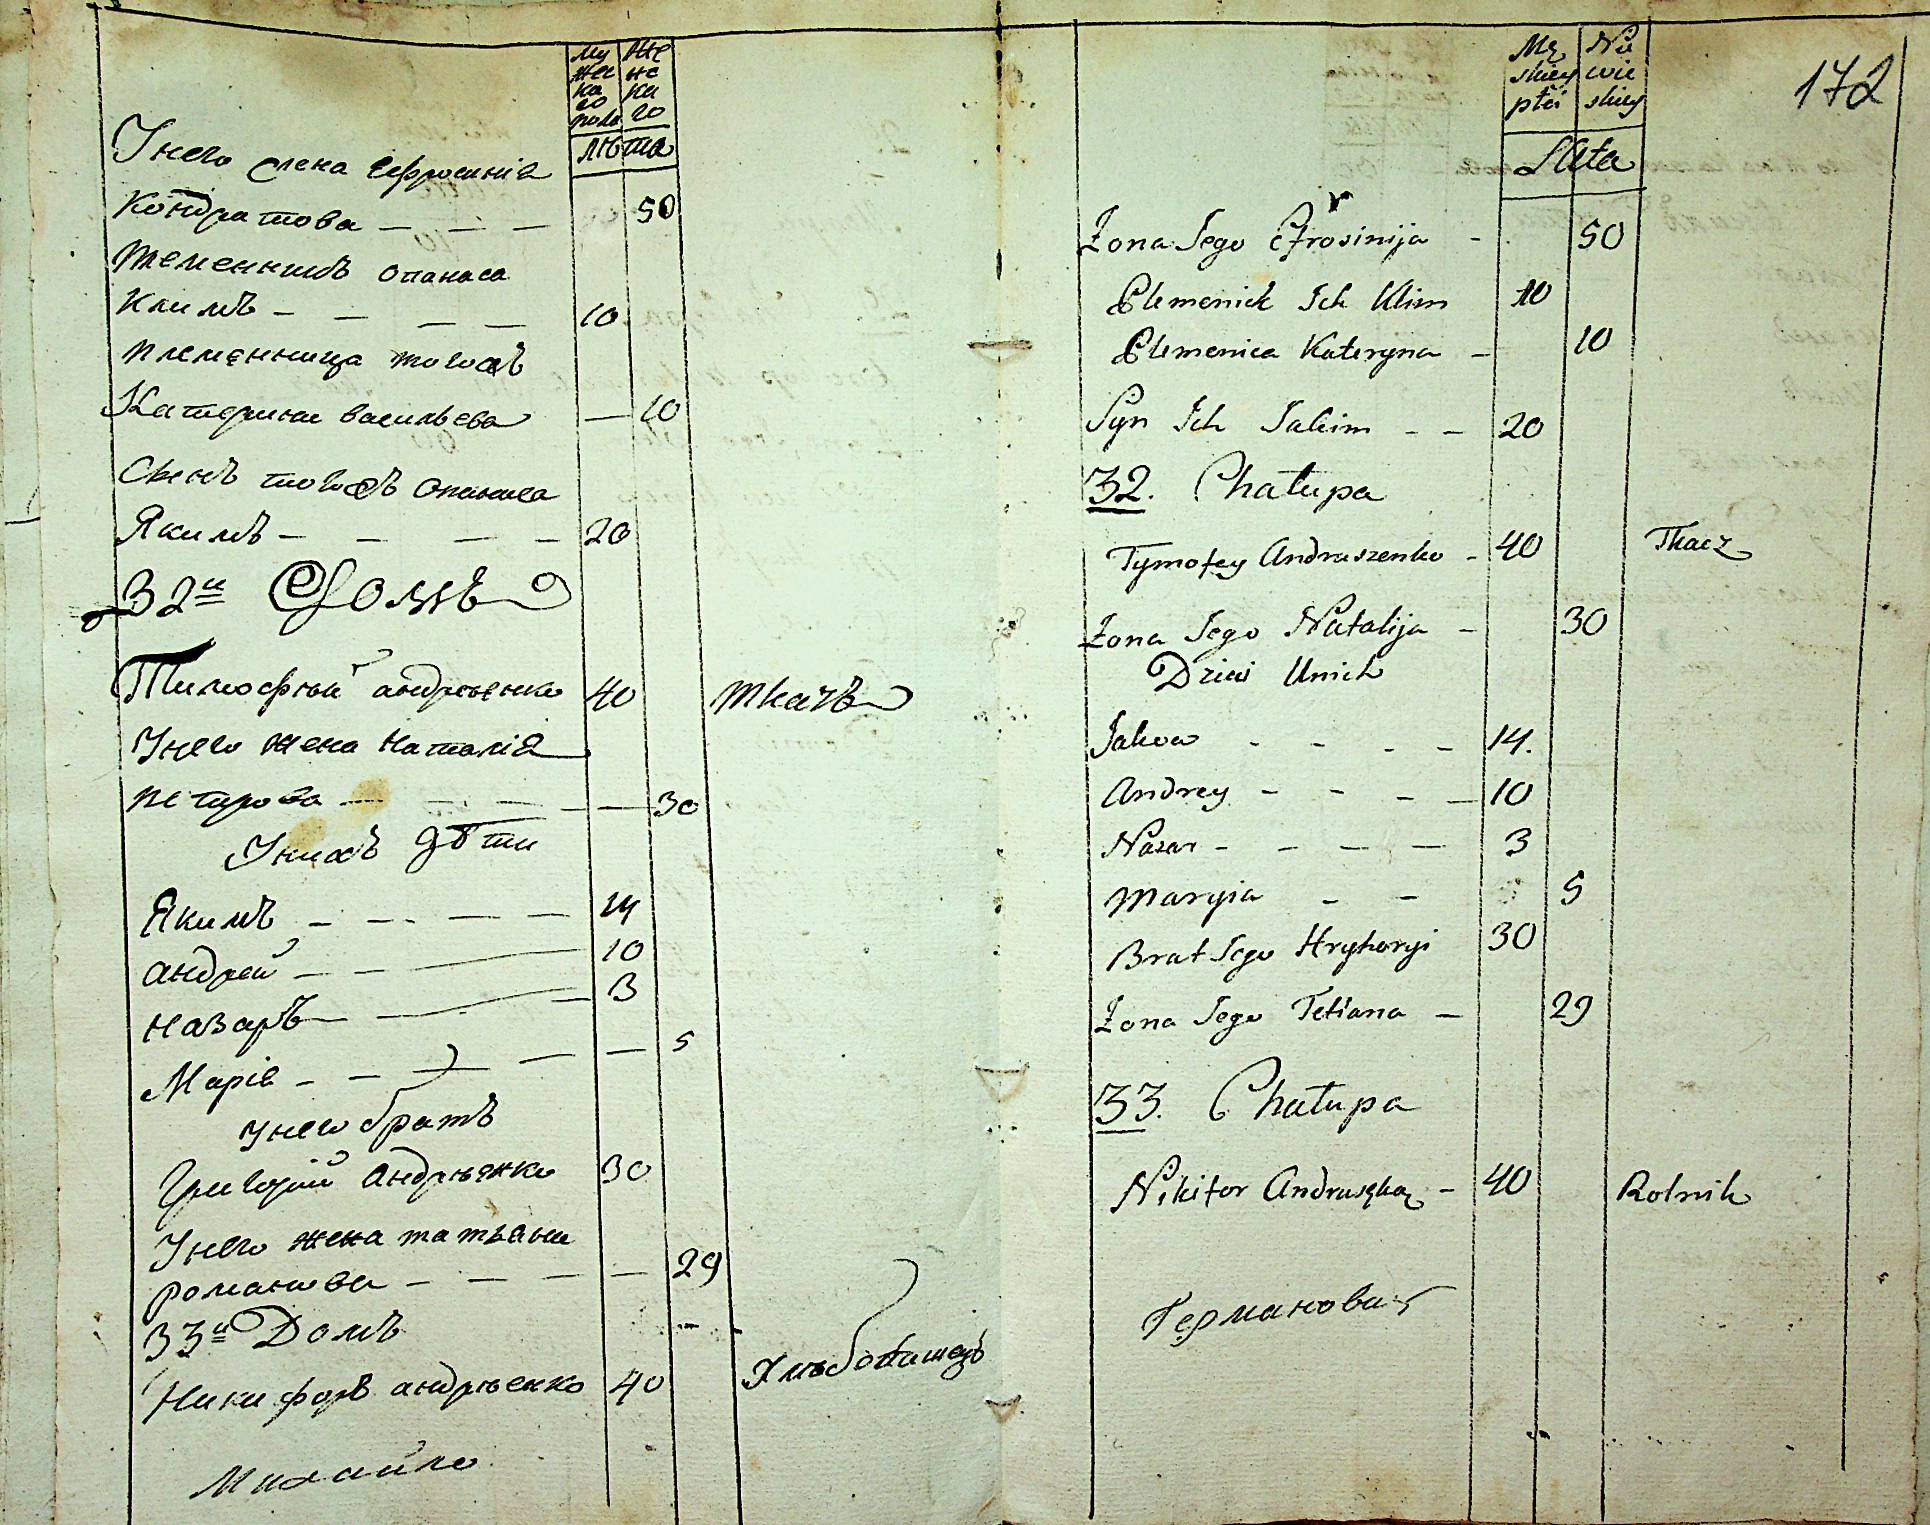 Му Же
жес нс
ка ка
го го
пола
лѣта
Унего жена Ефросинія
Кондратова — — — 50
племенникъ опанаса
Климъ — — — — 10
племенница тогожъ
Катерина васильева — 10
Сынъ тогожъ опанаса
Якимъ — — — — 20
32й Домъ
Тимофѣй андрѣенко 40 ткачъ
Унего жена Наталія
петрова — — — — — 30
Унихъ дѣти
Якимъ — — — — 14
андрей — — — 10
назаръ — — — 3
Марія — — — — — 5
Унего братъ
Григорій Андрѣенко 30
Унего жена татьяна
романова — — — — — 29
33й Домъ
Никифоръ андрѣенко 40 Хлѣбопашецъ
Михайло
172
Mę Nie
skiey wie
płci skiey
Lata
Żona Jego Efrosinija - 50
Plemenik Ich Klim 10
Plemenica Kateryna - 10
Syn Ich Jakim - - 20
32. Chałupa
Tymofey Andruszenko - 40 Tkacz
Żona Jego Natalija - 30
Dzieci Unich
Jakow - - - - 14.
Andrey - - - - 10
Nazar - - - - 3
Maryia - - 5
Brat Jego Hryhoryi 30
Żona Jego Tetiana - 29
33. Chałupa
Nikifor - 40 Rolnik
Германова